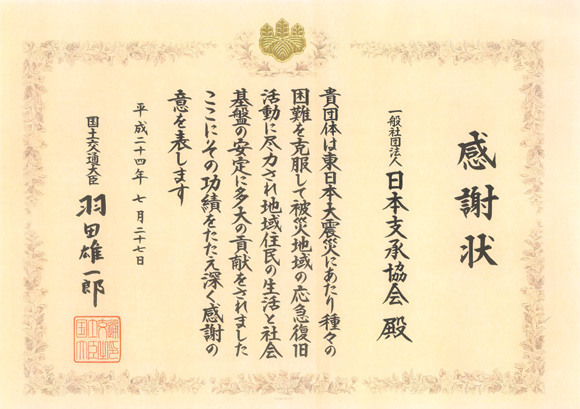 感謝状
一般社団法人 日本支承協会 殿
貴団体は東日本大震災にあたり種々の
困難を克服して被災地域の応急復旧
活動に尽力され地域住民の生活と社会
基盤の安定に多大の貢献をされました
ここにその功績をたたえ深く感謝の
意を表します
平成二十四年 七月二十七日
国土交通大臣 羽田雄一郎